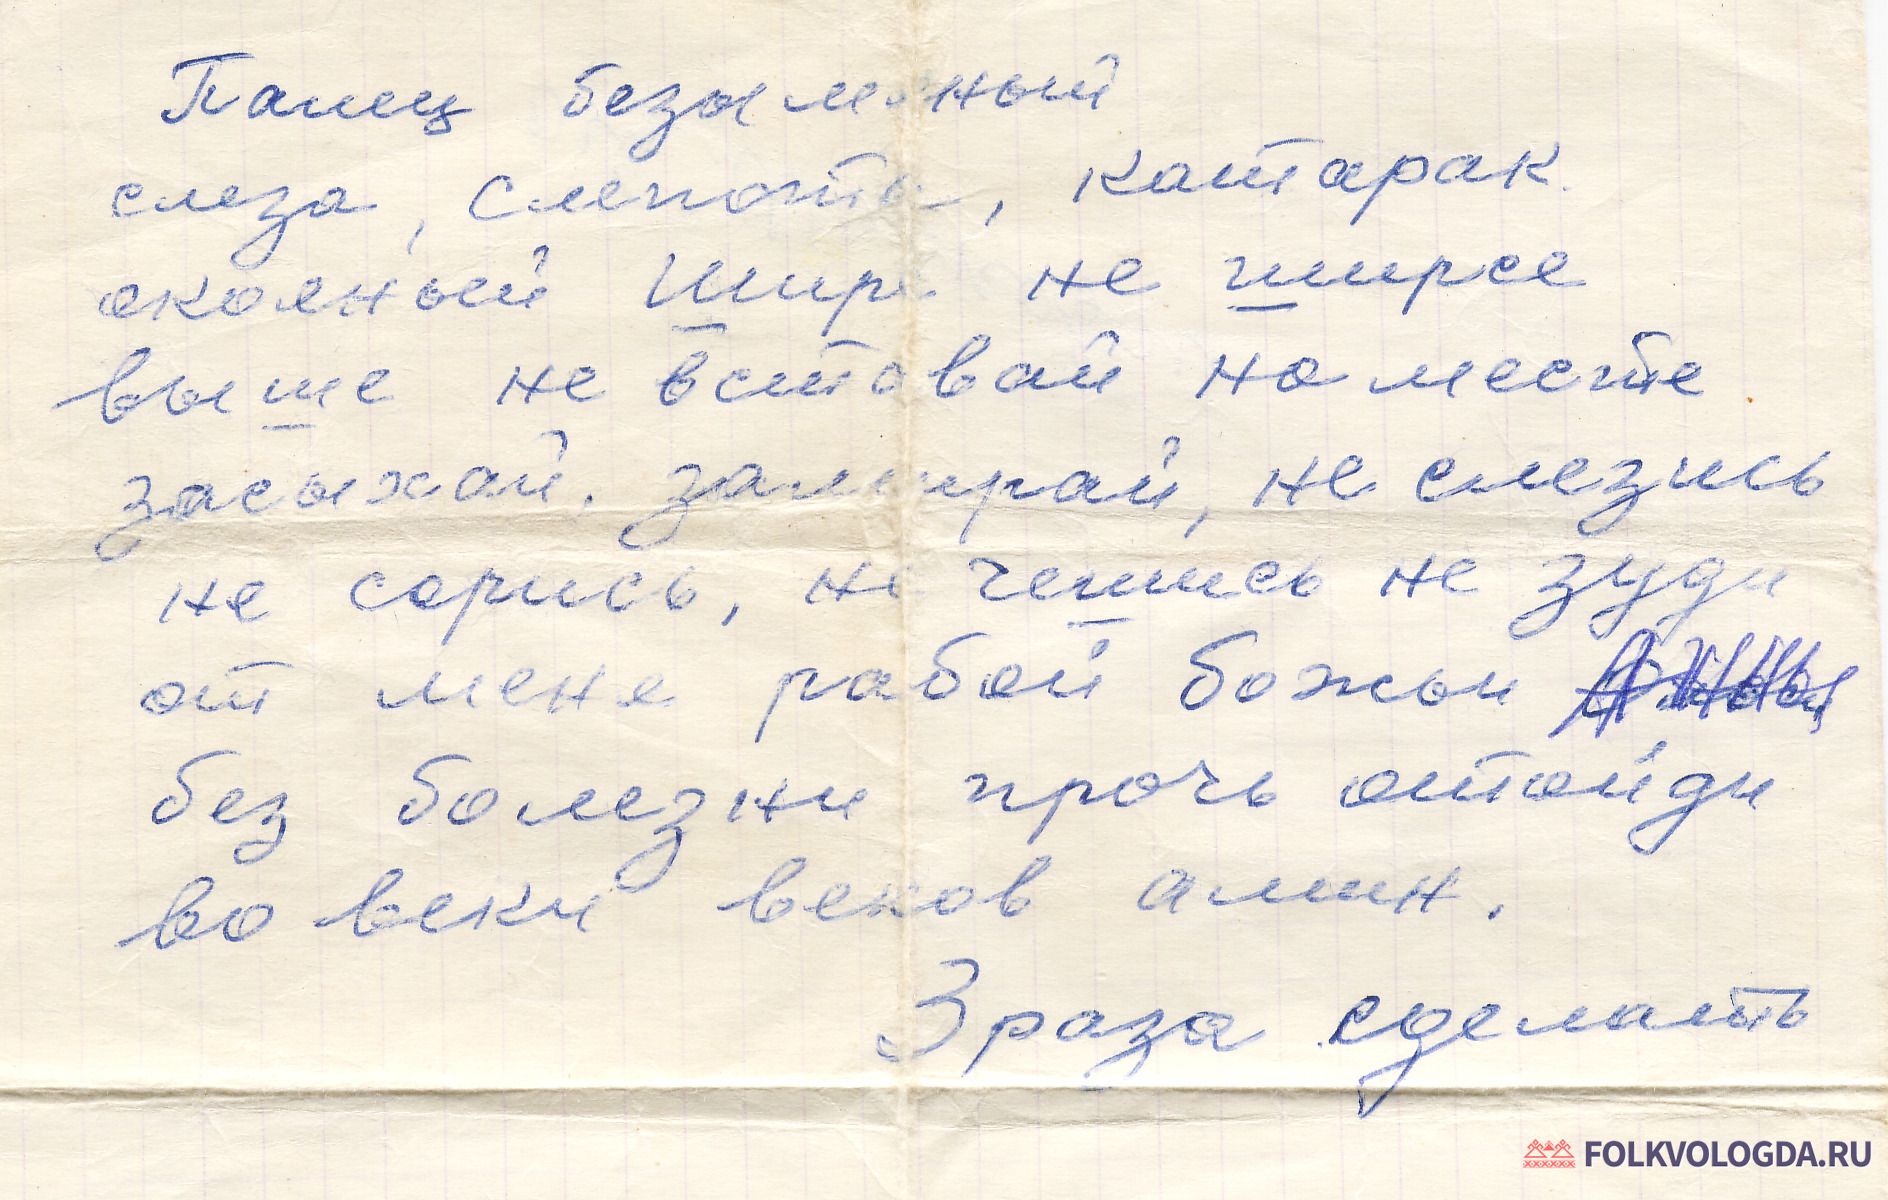 Палец безыменый
слеза, слепота, катарак
околный Шире не ширсе
выше не вставай на месте
засыхай. замирай, не слезись
не сорись, не чешись не зуди
от мене рабой божьи
без болезни прочь отойди
во веки веков амин.
3 раза сделать
FOLKVOLOGDA.RU